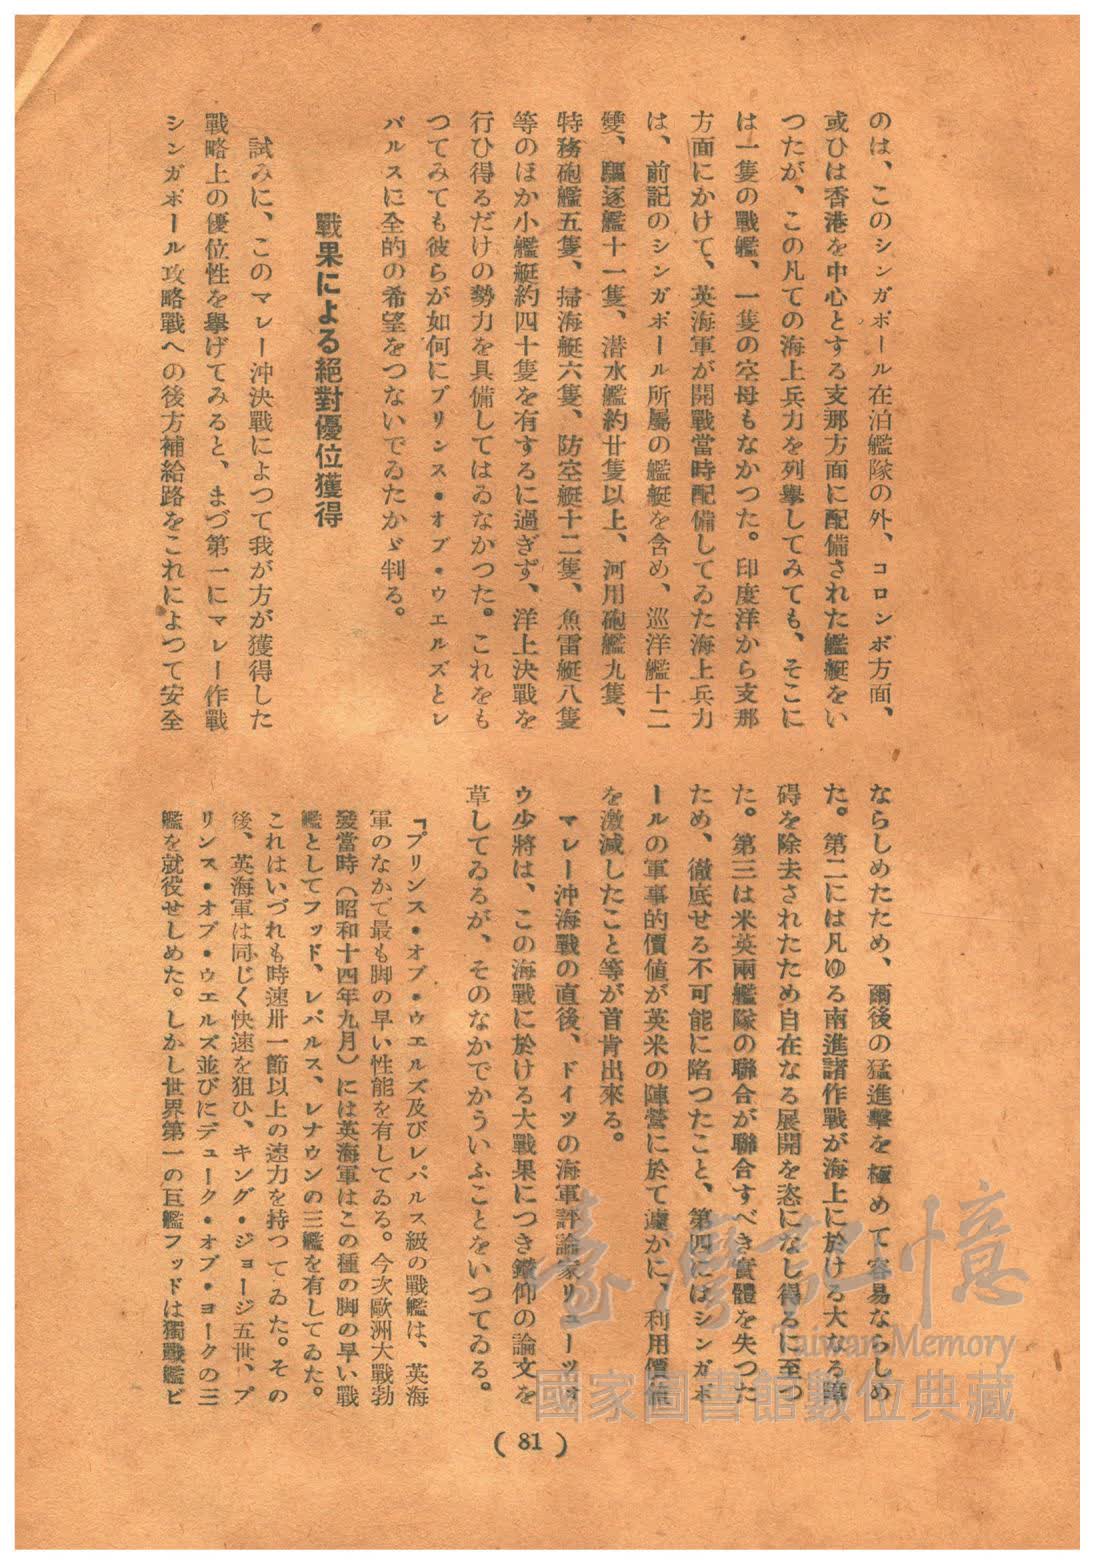 のは、このシンガポール在泊艦隊の外、コロンボ方面、
或ひは香港を中心とする支那方面に配備された艦艇をい
つたが、この凡ての海上兵力を列擧してみても、そこに
は一隻の戰艦、一隻の空母もなかつた。印度洋から支那
方面にかけて、英海軍が開戰當時配備してゐた海上兵力
は、前記のシンガポール所屬の艦艇を含め、巡洋艦十二
雙、驅逐艦十一隻、潜水艦約廿隻以上、河用砲艦九隻、
特務砲艦五隻、掃海艇六隻、防空艇十二隻、魚雷艇八隻
等のほか小艦艇約四十隻を有するに過ぎず、洋上決戰を
行ひ得るだけの勢力を具備してはゐなかつた。これをも
つてみても彼らが如何にプリンス・オブ・ウエルズとレ
パルスに全的の希望をつないでゐたかゞ判る。
戰果による絕對優位獲得
試みに、このマレー沖決戰によつて我が方が獲得した
戰略上の優位性を擧げてみると、まづ第一にマレー作戰
シンガポール攻略戰への後方補給路をこれによつて安全
ならしめたため、爾後の猛進擊を極めて容易ならしめ
た。第二には凡ゆる南進諸作戰が海上に於ける大なる障
碍を除去されたため自在なる展開を恣になし得るに至つ
た。第三は米英兩艦隊の聯合が聯合すべき實體を失つた
ため、徹底せる不可能に陷つたこと、第四にはシンガポ
ールの軍事的價値が英米の陣營に於て遽かに、利用價値
を激減したこと等が首肯出來る。
マレー沖海戰の直後、ドイツの海軍評論家リユーツオ
ウ少將は、この海戰に於ける大戰果につき鑽仰の論文を
草してゐるが、そのなかでかういふことをいつてゐる。
「プリンス・オブ・ウエルズ及びレパルス級の戰艦は、英海
軍のなかで最も脚の早い性能を有してゐる。今次歐洲大戰勃
發當時（昭和十四年九月）には英海軍はこの種の脚の早い戰
艦としてフッド、レパルス、レナウンの三艦を有してゐた。
これはいづれも時速卅一節以上の速力を持つてゐた。その
後、英海軍は同じく快速を狙ひ、キング・ジョージ五世、プ
リンス・オブ・ウエルズ並びにデューク・オブ・ヨークの三
艦を就役せしめた。しかし世界第一の巨艦フッドは獨戰艦ビ
( 81 )
臺灣記憶
Taiwan Memory
國家圖書館數位典藏